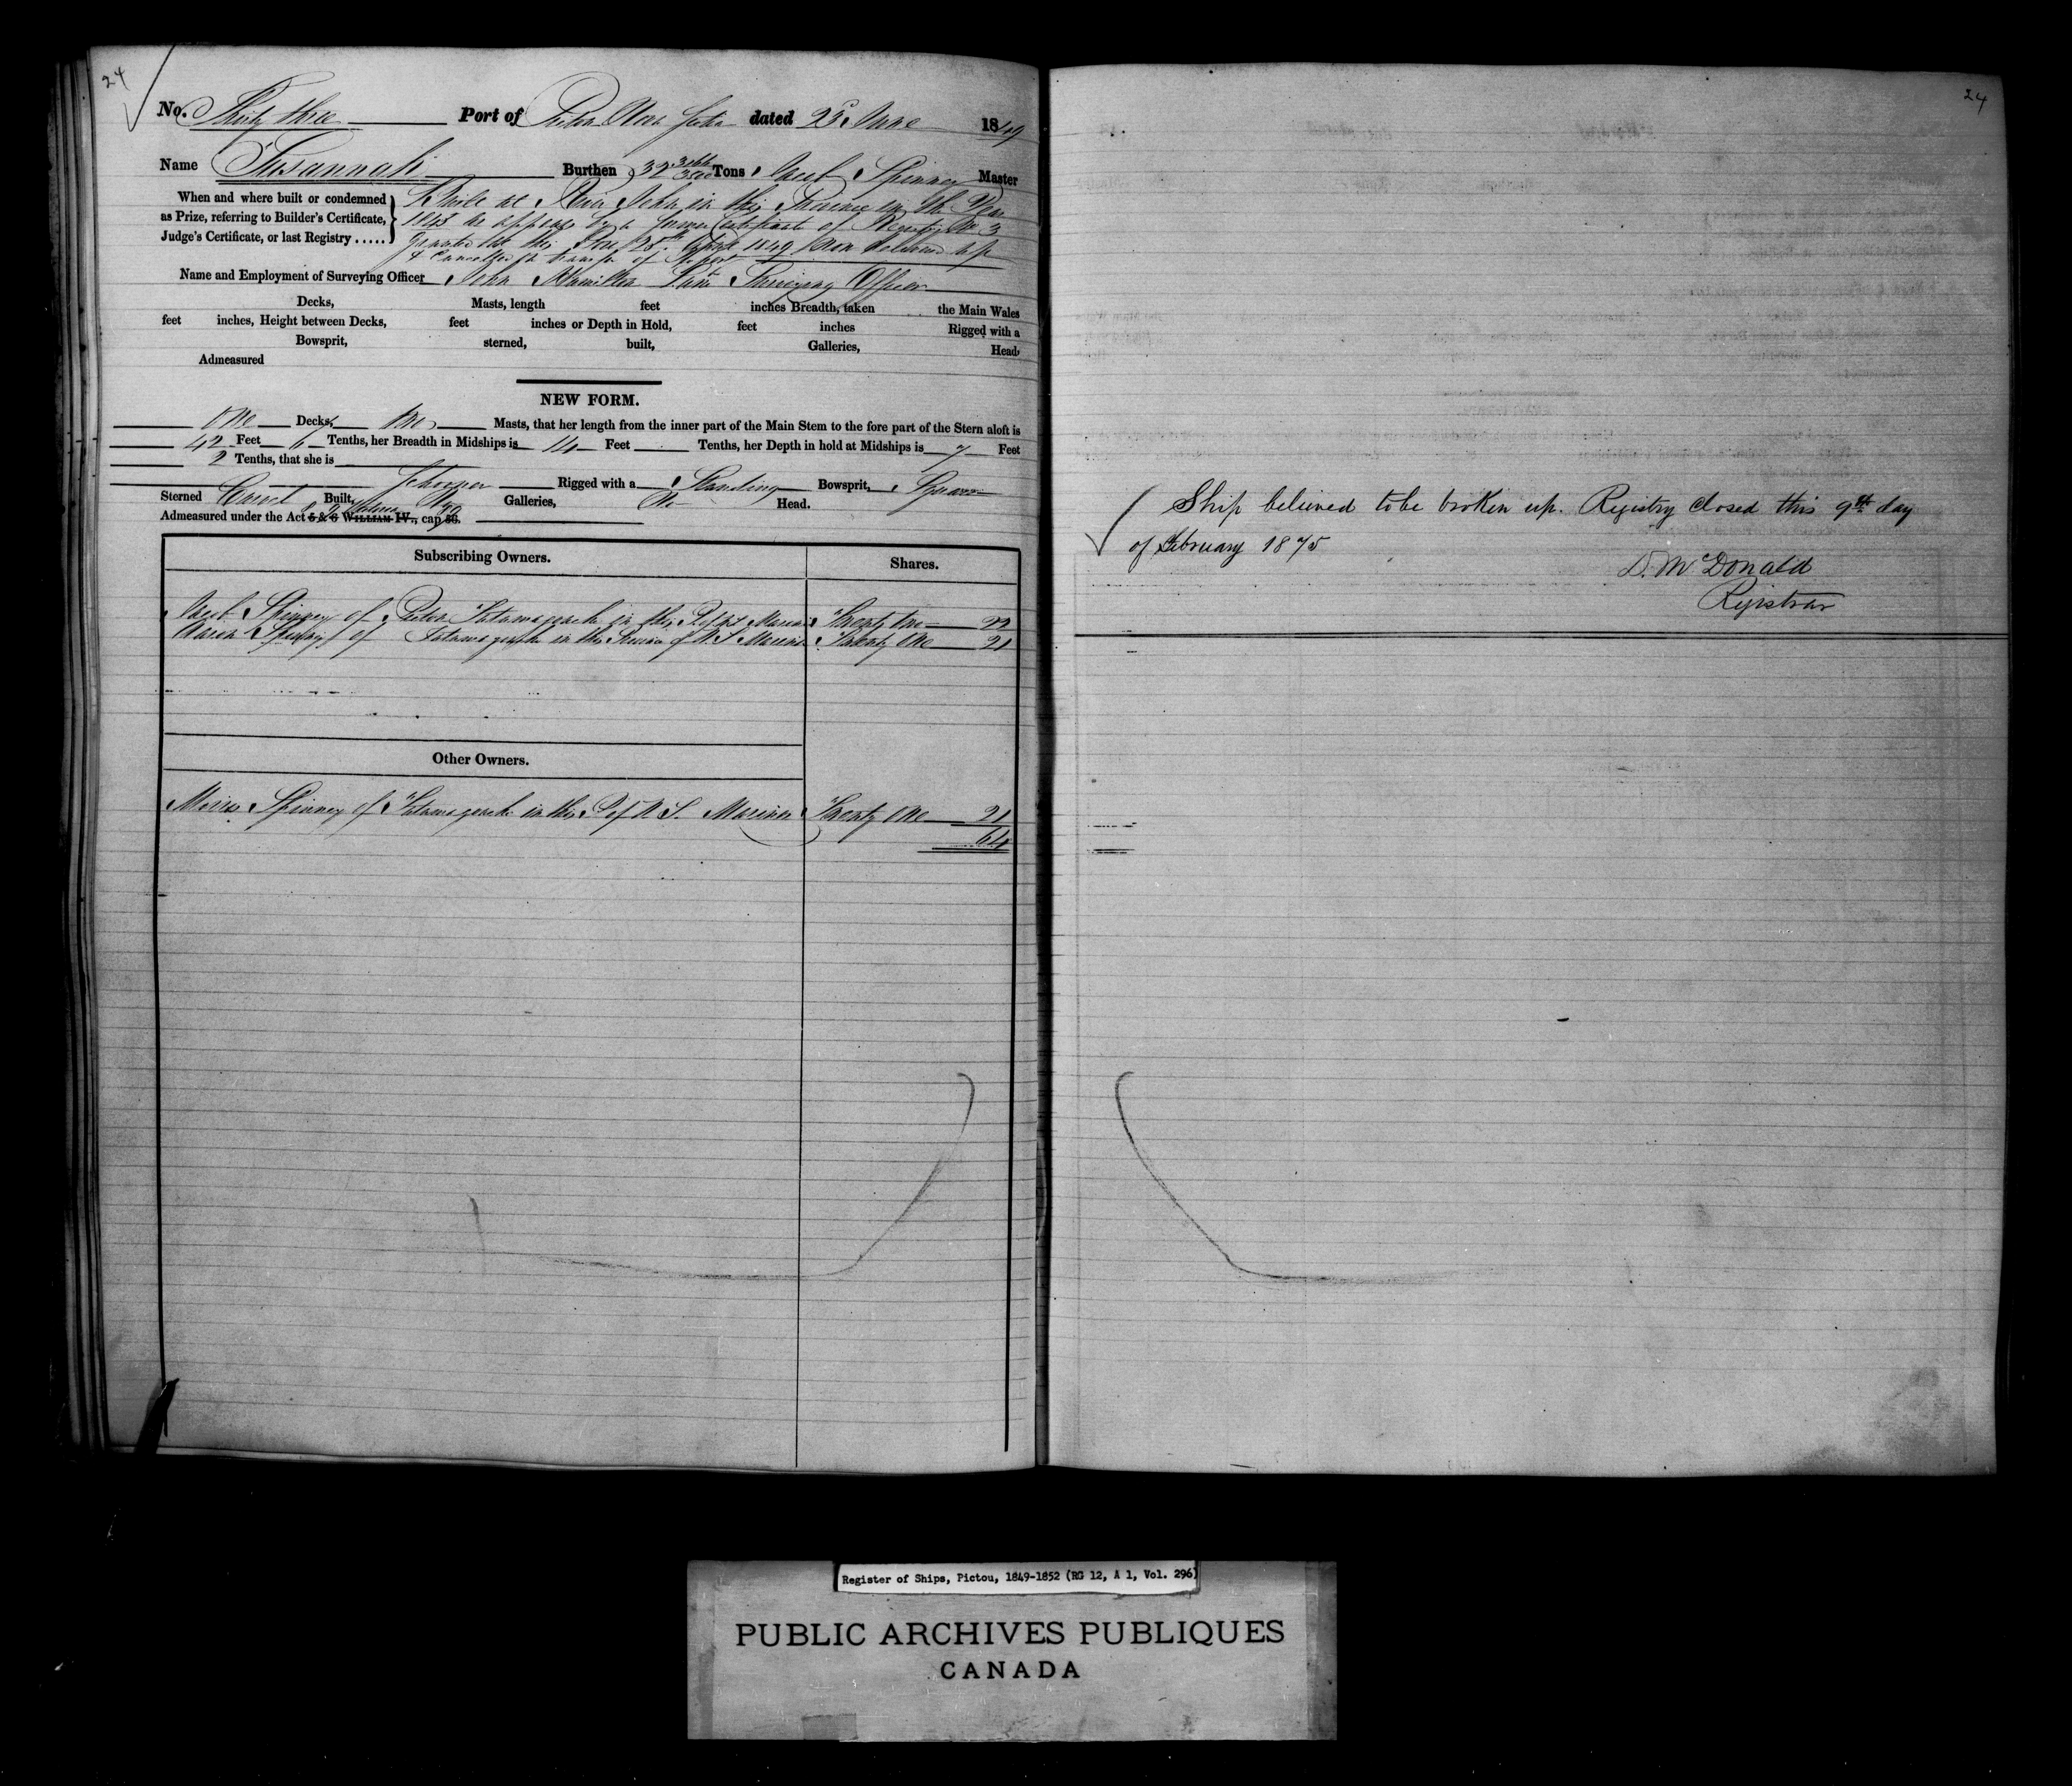 24
No. Thirty three Port of Pictou Nova Scotia dated 23d June 1849
Name Susannah Burthen 32 Tons Jacob Spinney Master
When and where built or condemned
as Prize, referring to Builder's Certificate,
Judge's Certificate, or last Registry .....
Built at River John in this Province in the Year
1843 as appears by a former Certificate of Registry No 3
granted at this Port 28th April 1849 now delivered up
& Cancelled
Name and Employment of Surveying Officer John Hamilton Surveying Officer
Decks, Masts, length feet inches Breadth, taken the Main Wales
feet inches, Height between Decks, feet inches or Depth in Hold, feet inches Rigged with a
Bowsprit, sterned, built, Galleries, Head,
Admeasured
NEW FORM.
One Decks, Masts, that her length from the inner part of the Main Stem to the fore part of the Stern aloft is
42 Feet 6 Tenths, her Breadth in Midships is 14 Feet Tenths, her Depth in hold at Midships is 7 Feet
2 Tenths, that she is
Schooner Rigged with a Standing Bowsprit, Square
Sterned Carvel Built, No Galleries, No Head.
Admeasured under the Act 5 & 6 WILLIAM IV., cap 56.
Subscribing Owners. Shares.
Jacob Spinney of Tatamagouche in the P of NS Mariner Twenty two 22
Spinney of Tatamagouche in the Province of N.S Mariner Twenty One 21
Other Owners.
Spinney of Tatamagouche in the P of N S. Mariner Twenty One 21
64
24
Ship believed to be broken up. Registry closed this 9th day
of February 1875
D. McDonald
Registrar
Register of Ships, Pictou, 1849-1852 (RG 12, A 1, Vol. 296)
PUBLIC ARCHIVES PUBLIQUES
CANADA